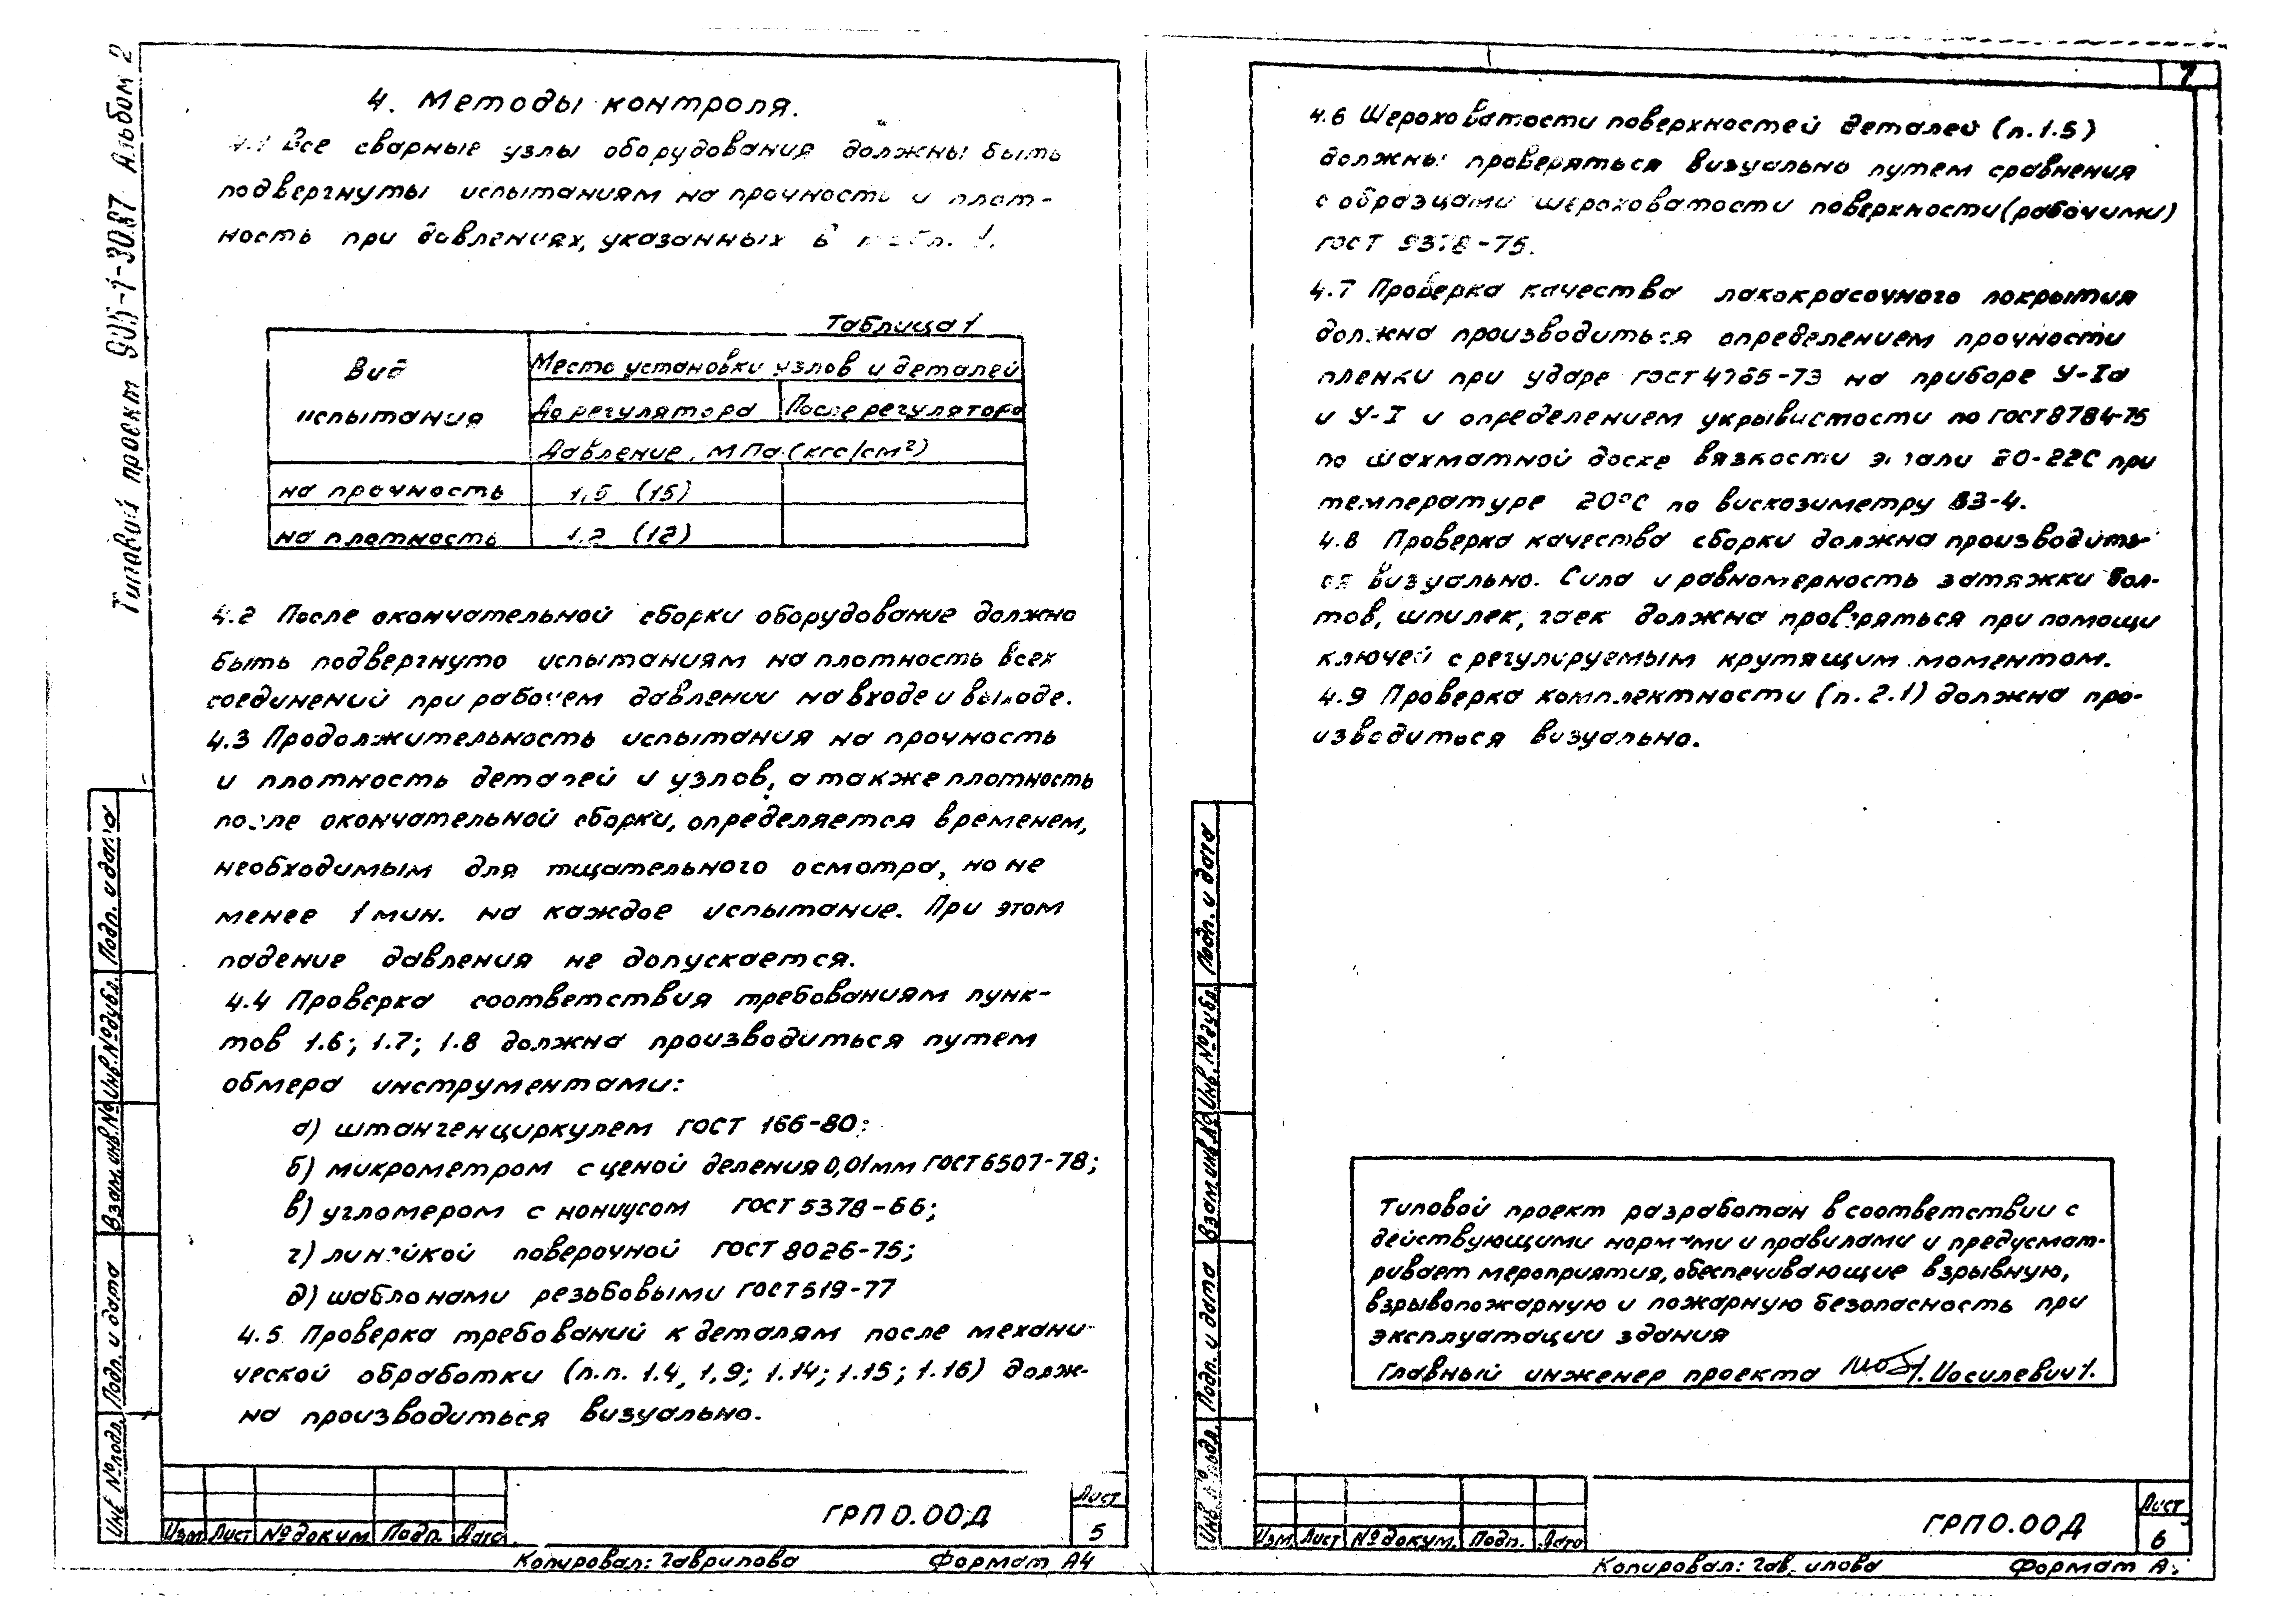 Типовой проект 905-1-30.87 Альбом 2
4. Методы контроля.
4.1 Все сварные узлы оборудования должны быть
подвергнуты испытаниям на прочность и плот-
ность при давлениях, указанных в табл. 1.
Таблица 1
Вид
испытания
Место установки узлов и деталей
До регулятора После регулятора
Давление, МПа (кгс/см²)
на прочность 1,5 (15)
на плотность 1,2 (12)
4.2 После окончательной сборки оборудование должно
быть подвергнуто испытаниям на плотность всех
соединений при рабочем давлении на входе и выходе.
4.3 Продолжительность испытания на прочность
и плотность деталей и узлов, а также плотность
после окончательной сборки, определяется временем,
необходимым для тщательного осмотра, но не
менее 1 мин. на каждое испытание. При этом
падение давления не допускается.
4.4 Проверка соответствия требованиям пунк-
тов 1.6; 1.7; 1.8 должна производиться путем
обмера инструментами:
а) штангенциркулем ГОСТ 166-80;
б) микрометром с ценой деления 0,01мм ГОСТ 6507-78;
в) угломером с нониусом ГОСТ 5378-66;
г) линейкой поверочной ГОСТ 8026-75;
д) шаблонами резьбовыми ГОСТ 519-77
4.5 Проверка требований к деталям после механи-
ческой обработки (п.п. 1.4, 1,9; 1.14; 1.15; 1.16) долж-
на производиться визуально.
Инв № подл. Подп. и дата Взам. инв. № Инв. № дубл. Подп. и дата
Изм Лист № докум. Подп. Дата
ГРП 0.00Д
Лист
5
Копировал: Гаврилова Формат А4
7
4.6 Шероховатости поверхностей деталей (п.1.5)
должны проверяться визуально путем сравнения
с образцами шероховатости поверхности (рабочими)
ГОСТ 9378-75.
4.7 Проверка качества лакокрасочного покрытия
должна производиться определением прочности
пленки при ударе ГОСТ 4765-73 на приборе У-Iа
и У-I и определением укрывистости по ГОСТ 8784-75
по шахматной доске вязкости эмали 20-22С при
температуре 20°С по вискозиметру ВЗ-4.
4.8 Проверка качества сборки должна производить-
ся визуально. Сила и равномерность затяжки бол-
тов, шпилек, гаек должна проверяться при помощи
ключей с регулируемым крутящим моментом.
4.9 Проверка комплектности (п. 2.1) должна про-
изводиться визуально.
Типовой проект разработан в соответствии с
действующими нормами и правилами и предусмат-
ривает мероприятия, обеспечивающие взрывную,
взрывопожарную и пожарную безопасность при
эксплуатации здания
Главный инженер проекта Иосилевич
Инв. № подл. Подп. и дата Взам инв № Инв. № дубл. Подп. и дата
Изм. Лист № докум. Подп. Дата
ГРП 0.00Д
Лист
6
Копировал: Гаврилова Формат